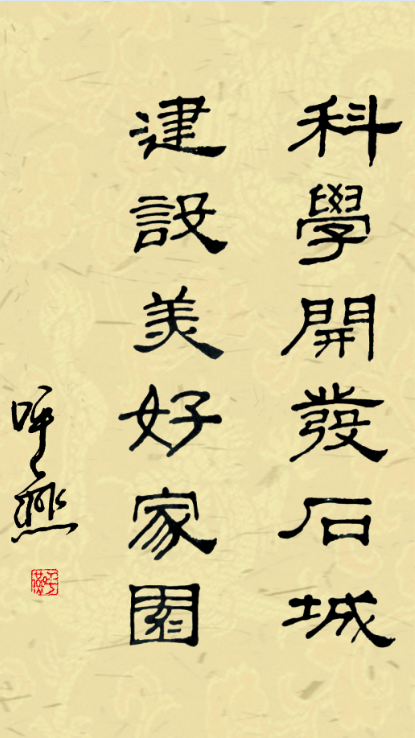 科學開發石城
建設美好家園